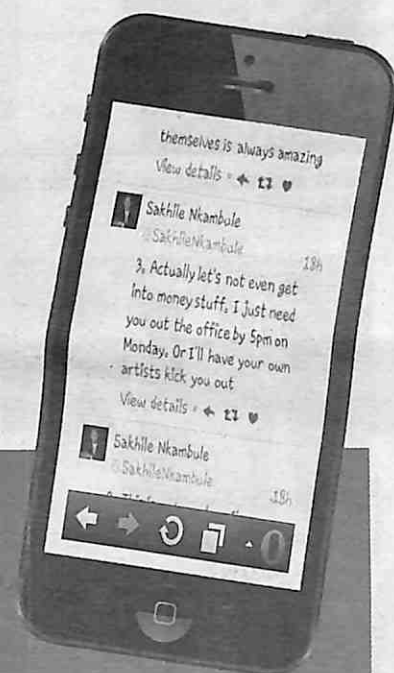 themselves is always amazing
View details
Sakhile Nkambule
@SakhileNkambule
18h
3, Actually let's not even get
into money stuff, I just need
you out the office by 5pm on
Monday, Or I'll have your own
artists kick you out
View details
Sakhile Nkambule
@SakhileNkambule
18h